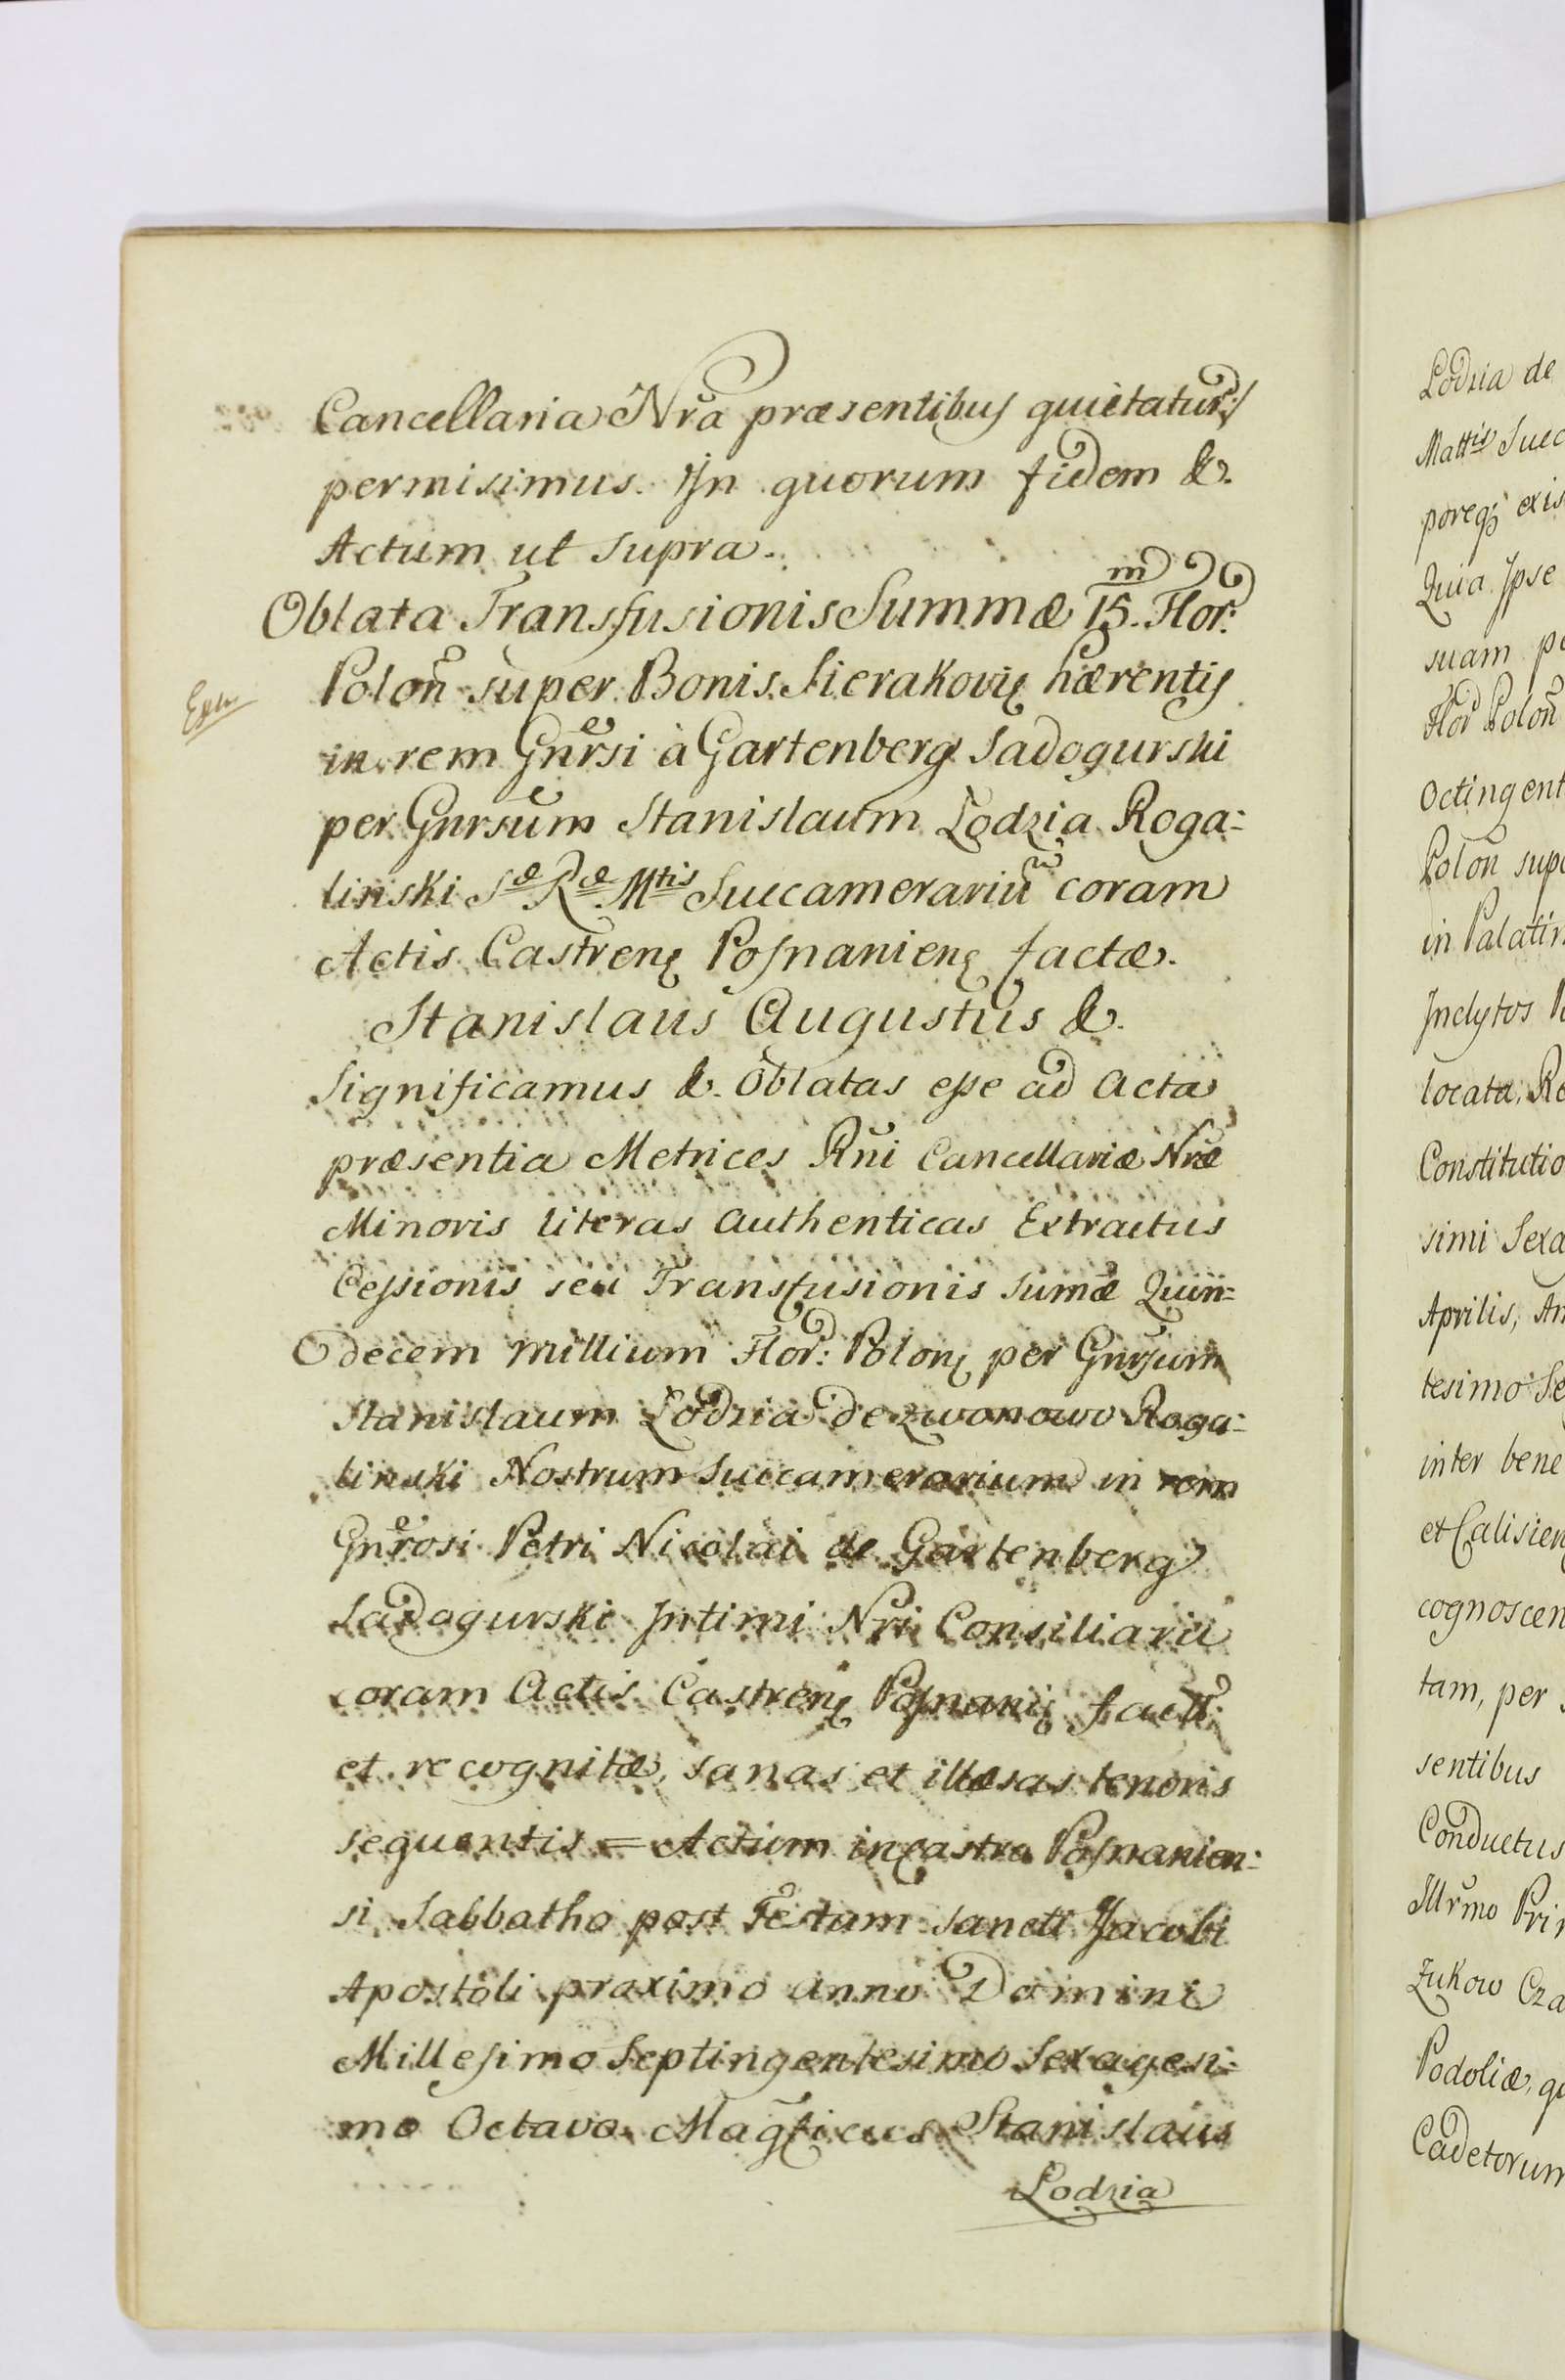 Cancellaria Nra præsentibus quietatur/
permisimus. In quorum fidem &.
Actum ut supra.
Oblata Transfusionis Summæ 15.m Flor:
Polon super Bonis Sierakovię hærentis
Exu
in rem Gnrsi à Gartenberg Sadogurski
per Gnrsum Stanislaum Lodzia Roga=
linski Sæ Ræ Mtis Succamerariu coram
Actis Castrenę Posnanienę factæ.
Stanislaus Augustus &.
Significamus &. Oblatas esse ad Acta
præsentia Metrices Rni Cancellariæ Nræ
Minoris literas authenticas Extractus
Cessionis seu Transfusionis sumæ Quin=
decem millium Flor: Polonę per Gnrsum
Stanislaum Lodzia de Zwonowo Roga=
linski Nostrum Succamerarium in rem
Gnrosi Petri Nicolai de Gartenberg
Sadogurski Intimi Nri Consiliarii
coram Actis Castrenę Posnanię fact
et recognitæ, sanas et illæsas tenoris
sequentis = Actum in Castro Posnanien=
si Sabbatho post Festum Sancti Jacobi
Apostoli proximo anno Domini
Millesimo Septingentesimo Sexagesi=
mo Octavo Magficus Stanislaus
Lodzia
Lodzia de
Mattis Succ
poreqȝ exis
Quia Ipse
suam pe
Flor Polon
Octingent
Polon supe
in Palatin
Inclytos R
locata, Re
Constitutio
simi Sexa
Aprilis, An
tesimo Se
inter bene
et Calisien
cognoscen
tam, per
sentibus
Conductus
Illrmo Prin
Zukow Cza
Podoliæ, qu
Cadetorum